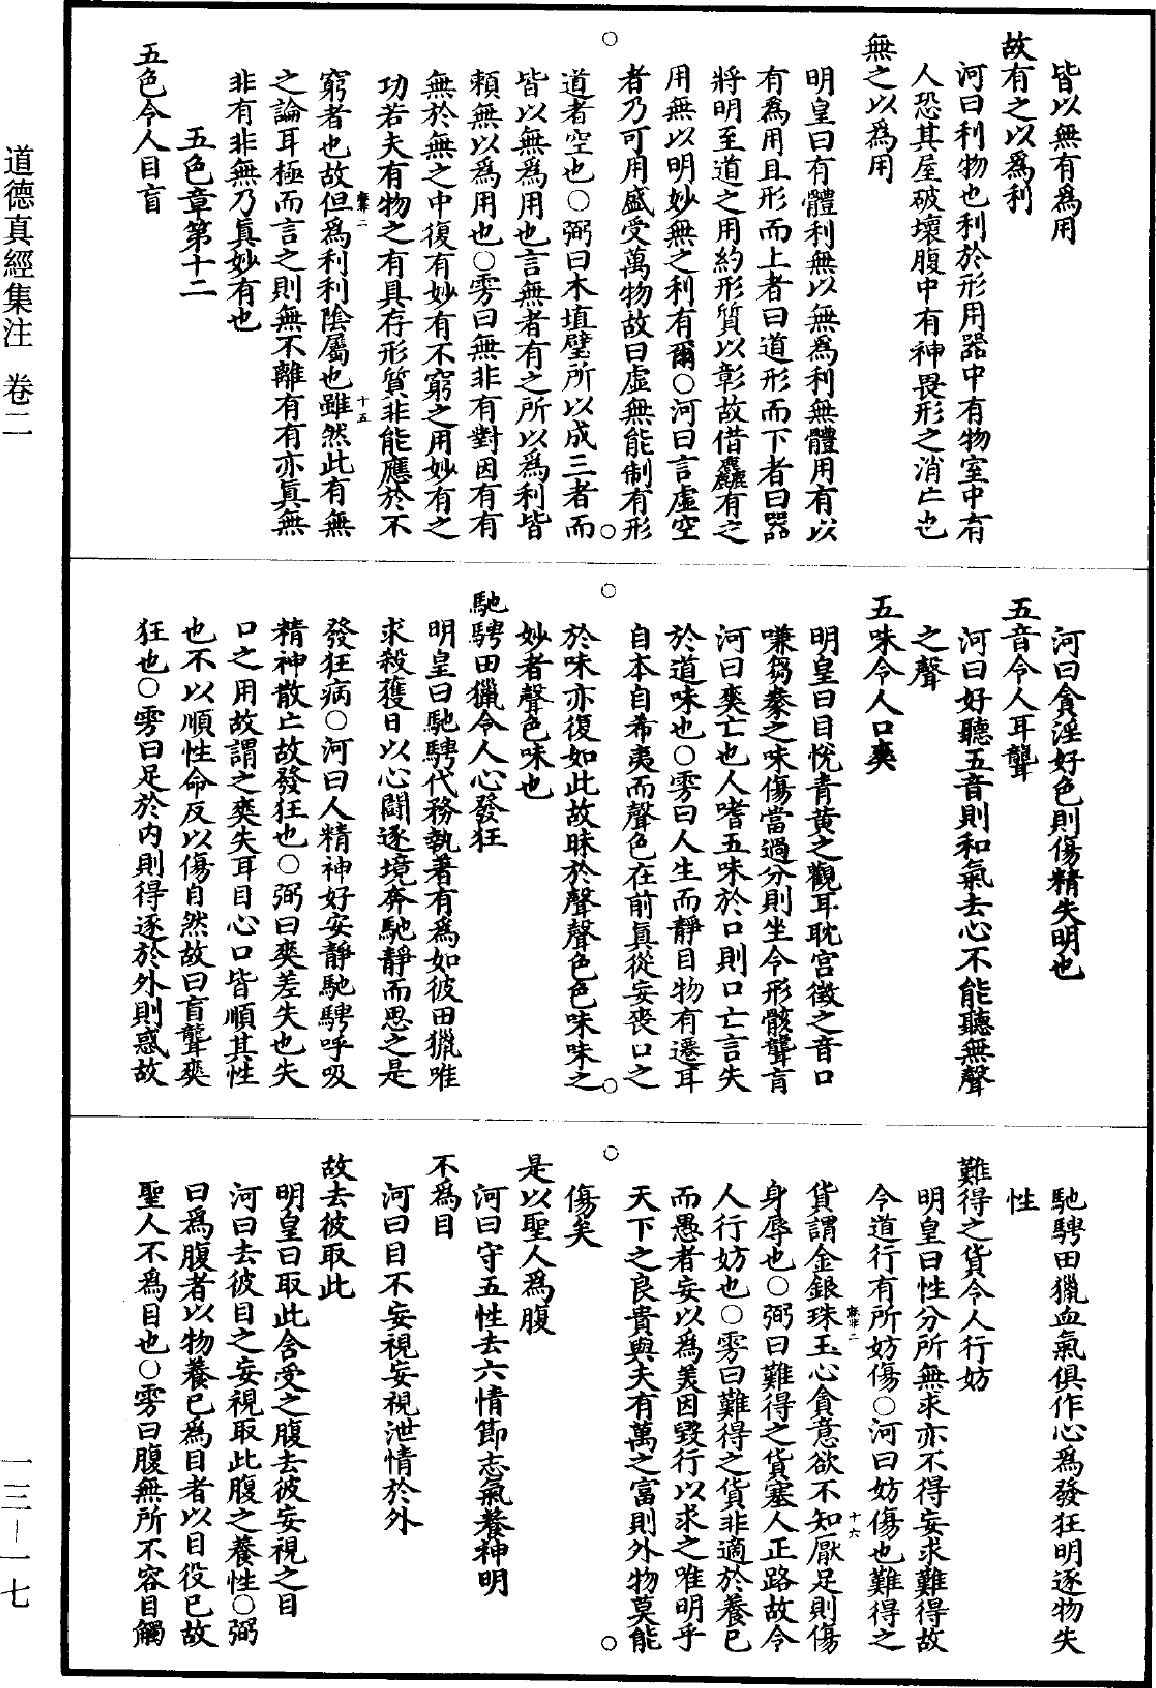 皆以無有爲用
故有之以爲利
河曰利物也利於形用器中有物室中有
人恐其屋破壞腹中有神畏形之消亡也
無之以爲用
明皇曰有體利無以無爲利無體用有以
有爲用且形而上者曰道形而下者曰器
將明至道之用約形質以彰故借麤有之
用無以明妙無之利有爾○河曰言虛空
者乃可用盛受萬物故曰虛無能制有形
道者空也○弼曰木埴壁所以成三者而
皆以無爲用也言無者有之所以爲利皆
賴無以爲用也○雱曰無非有對因有有
無於無之中復有妙有不窮之用妙有之
功若夫有物之有具存形質非能應於不
窮者也故但爲利利陰屬也雖然此有無
之論耳極而言之則無不離有有亦眞無
非有非無乃眞妙有也
五色章第十二
五色令人目盲
河曰貪淫好色則傷精失明也
五音令人耳聾
河曰好聽五音則和氣去心不能聽無聲
之聲
五味令人口爽
明皇曰目悅青黃之觀耳耽宮徵之音口
嗛芻豢之味傷當過分則坐令形骸聾盲
河曰爽亡也人嗜五味於口則口亡言失
於道味也○雱曰人生而靜目物有遷耳
自本自希夷而聲色在前眞從妄喪口之
於味亦復如此故昧於聲聲色色味味之
妙者聲色味也
馳騁田獵令人心發狂
明皇曰馳騁代務執著有爲如彼田獵唯
求殺獲日以心鬭逐境奔馳靜而思之是
發狂病○河曰人精神好安靜馳騁呼吸
精神散亡故發狂也○弼曰爽差失也失
口之用故謂之爽失耳目心口皆順其性
也不以順性命反以傷自然故曰盲聾爽
狂也○雱曰足於內則得逐於外則惑故
馳騁田獵血氣俱作心爲發狂明逐物失
性
難得之貨令人行妨
明皇曰性分所無求亦不得妄求難得故
令道行有所妨傷○河曰妨傷也難得之
貨謂金銀珠玉心貪意欲不知厭足則傷
身辱也○弼曰難得之貨塞人正路故令
人行妨也○雱曰難得之貨非適於養已
而愚者妄以爲美因毀行以求之唯明乎
天下之良貴與夫有萬之富則外物莫能
傷矣
是以聖人爲腹
河曰守五性去六情節志氣養神明
不爲目
河曰目不妄視妄視泄情於外
故去彼取此
明皇曰取此含受之腹去彼妄視之目
河曰去彼目之妄視取此腹之養性○弼
曰爲腹者以物養已爲目者以目役已故
聖人不爲目也○雱曰腹無所不容目觸
道德真經集注 卷二
一三－一七
十五
十六